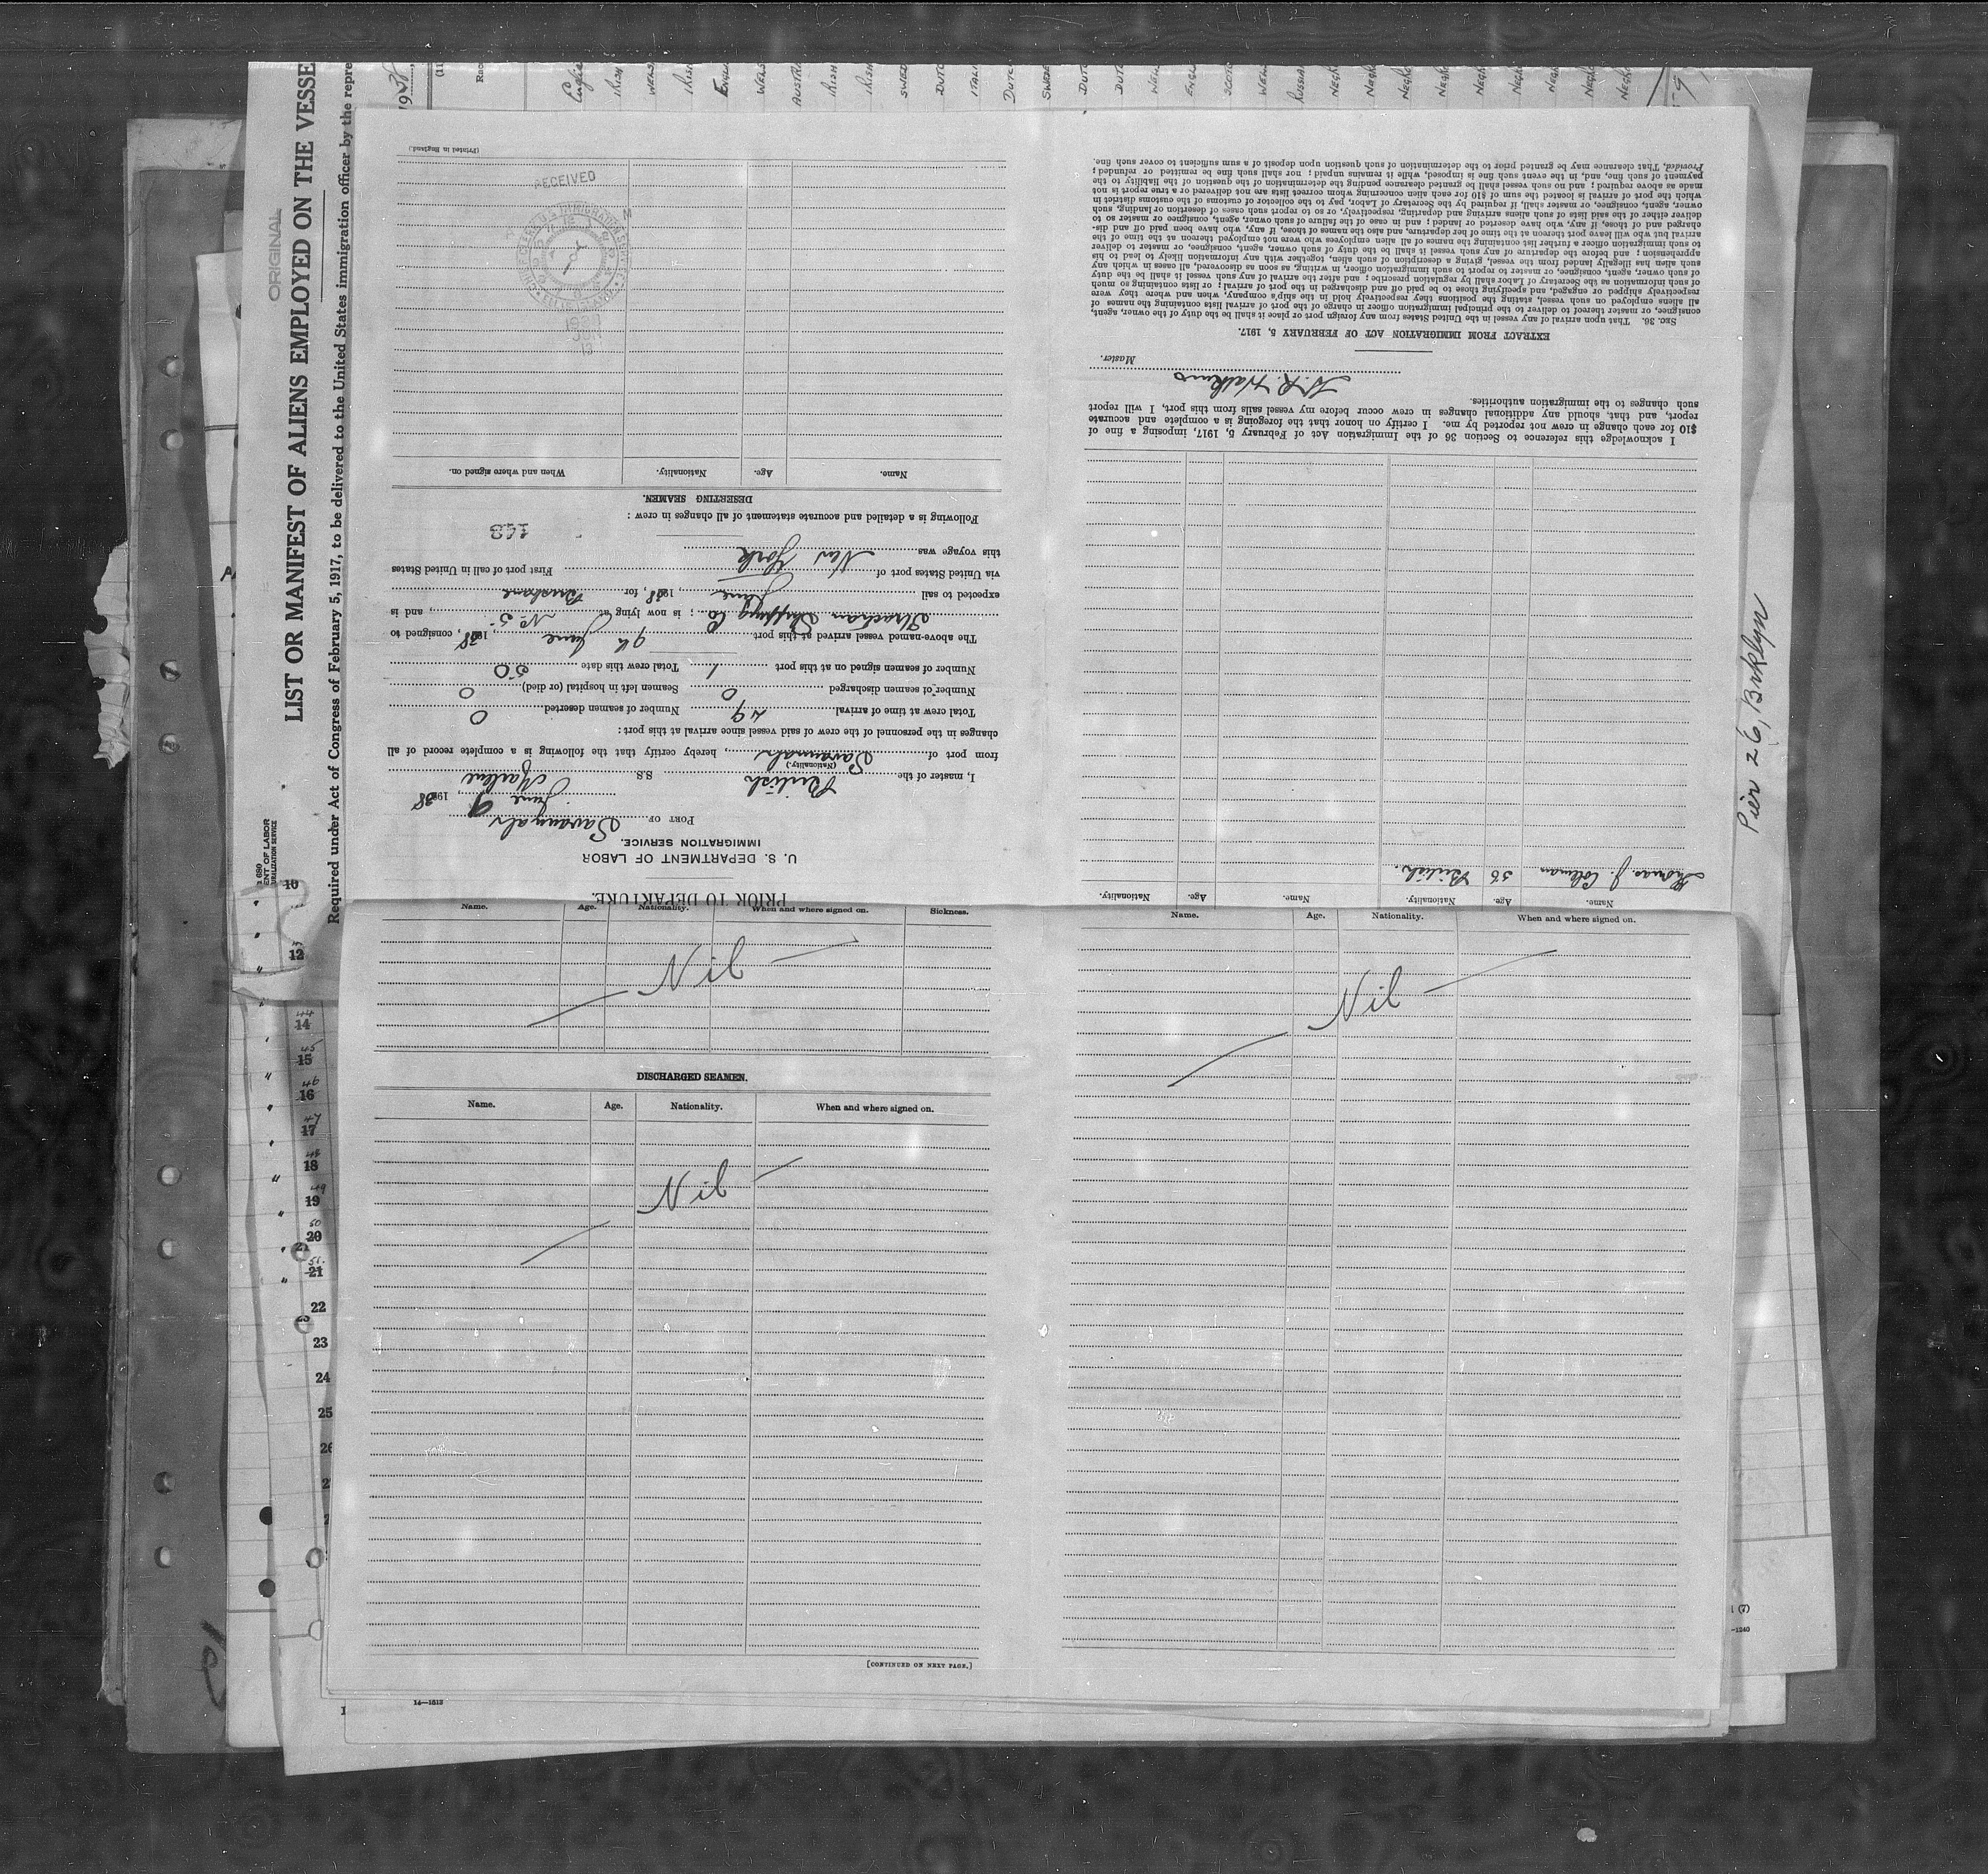 ORIGINAL
LIST OR MANIFEST OF ALIENS EMPLOYED ON THE VESSE
Required under Act of Congress of February 5, 1917, to be delivered to the United States immigration officer by the repre
PRIOR TO DEPARTURE.
U. S. DEPARTMENT OF LABOR
IMMIGRATION SERVICE.
PORT OF Savannah
June 9, 1938
I, master of the British S.S.
(Nationality.)
from port of Savannah, hereby certify that the following is a complete record of all
changes in the personnel of the crew of said vessel since arrival at this port:
Total crew at time of arrival 49 Number of seamen deserted 0
Number of seamen discharged 0 Seamen left in hospital (or died) 0
Number of seamen signed on at this port 1 Total crew this date 50
The above-named vessel arrived at this port 9th June, 1938, consigned to
Strachan Shipping Co; is now lying at No 5, and is
expected to sail June, 1938, for Brisbane
via United States port of New York First port of call in United States
this voyage was
Following is a detailed and accurate statement of all changes in crew:
168
DESERTING SEAMEN.
Name. Age. Nationality. When and where signed on.
RECEIVED
(Printed in England.)
Name. Age. Nationality. Name. Age. Nationality.
Thomas J. Coleman 36 British.
I acknowledge this reference to Section 36 of the Immigration Act of February 5, 1917, imposing a fine of
$10 for each change in crew not reported by me. I certify on honor that the foregoing is a complete and accurate
report, and that, should any additional changes in crew occur before my vessel sails from this port, I will report
such changes to the immigration authorities.
Master.
EXTRACT FROM IMMIGRATION ACT OF FEBRUARY 5, 1917.
SEC. 36. That upon arrival of any vessel in the United States from any foreign port or place it shall be the duty of the owner, agent,
consignee, or master thereof to deliver to the principal immigration officer in charge of the port of arrival lists containing the names of
all aliens employed on such vessel, stating the positions they respectively hold in the ship's company, when and where they were
respectively shipped or engaged, and specifying those to be paid off and discharged in the port of arrival; or lists containing so much
of such information as the Secretary of Labor shall by regulation prescribe; and after the arrival of any such vessel it shall be the duty
of such owner, agent, consignee, or master to report to such immigration officer, in writing, as soon as discovered, all cases in which any
such alien has illegally landed from the vessel, giving a description of such alien, together with any information likely to lead to his
apprehension; and before the departure of any such vessel it shall be the duty of such owner, agent, consignee, or master to deliver
to such immigration officer a further list containing the names of all alien employees who were not employed thereon at the time of the
arrival but who will leave port thereon at the time of her departure, and also the names of those, if any, who have been paid off and dis-
charged and of those, if any, who have deserted or landed; and in case of the failure of such owner, agent, consignee or master so to
deliver either of the said lists of such aliens arriving and departing, respectively, or so to report such cases of desertion or landing, such
owner, agent, consignee, or master shall, if required by the Secretary of Labor, pay to the collector of customs of the customs district in
which the port of arrival is located the sum of $10 for each alien concerning whom correct lists are not delivered or a true report is not
made as above required; and no such vessel shall be granted clearance pending the determination of the question of the liability to the
payment of such fine, and, in the event such fine is imposed, while it remains unpaid; nor shall such fine be remitted or refunded;
Provided, That clearance may be granted prior to the determination of such question upon deposit of a sum sufficient to cover such fine.
Pier 26, Brklyn
Name. Age. Nationality. When and where signed on. Sickness.
Nil
DISCHARGED SEAMEN.
Name. Age. Nationality. When and where signed on.
Nil
[CONTINUED ON NEXT PAGE.]
Name. Age. Nationality. When and where signed on.
Nil
10
12
14
15
16
17
18
19
20
21
22
23
24
25
14—1513